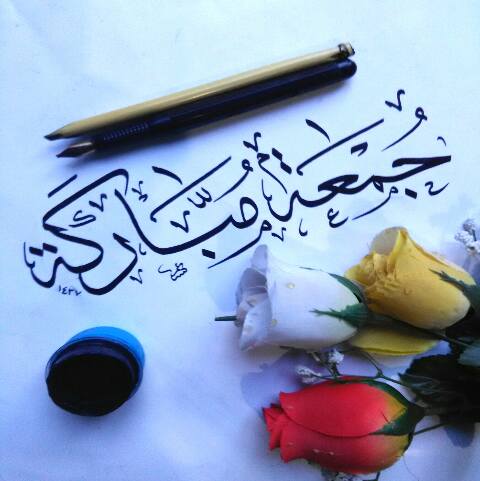 جُمْعَة مُبَّارَكَة
١٤٣٧